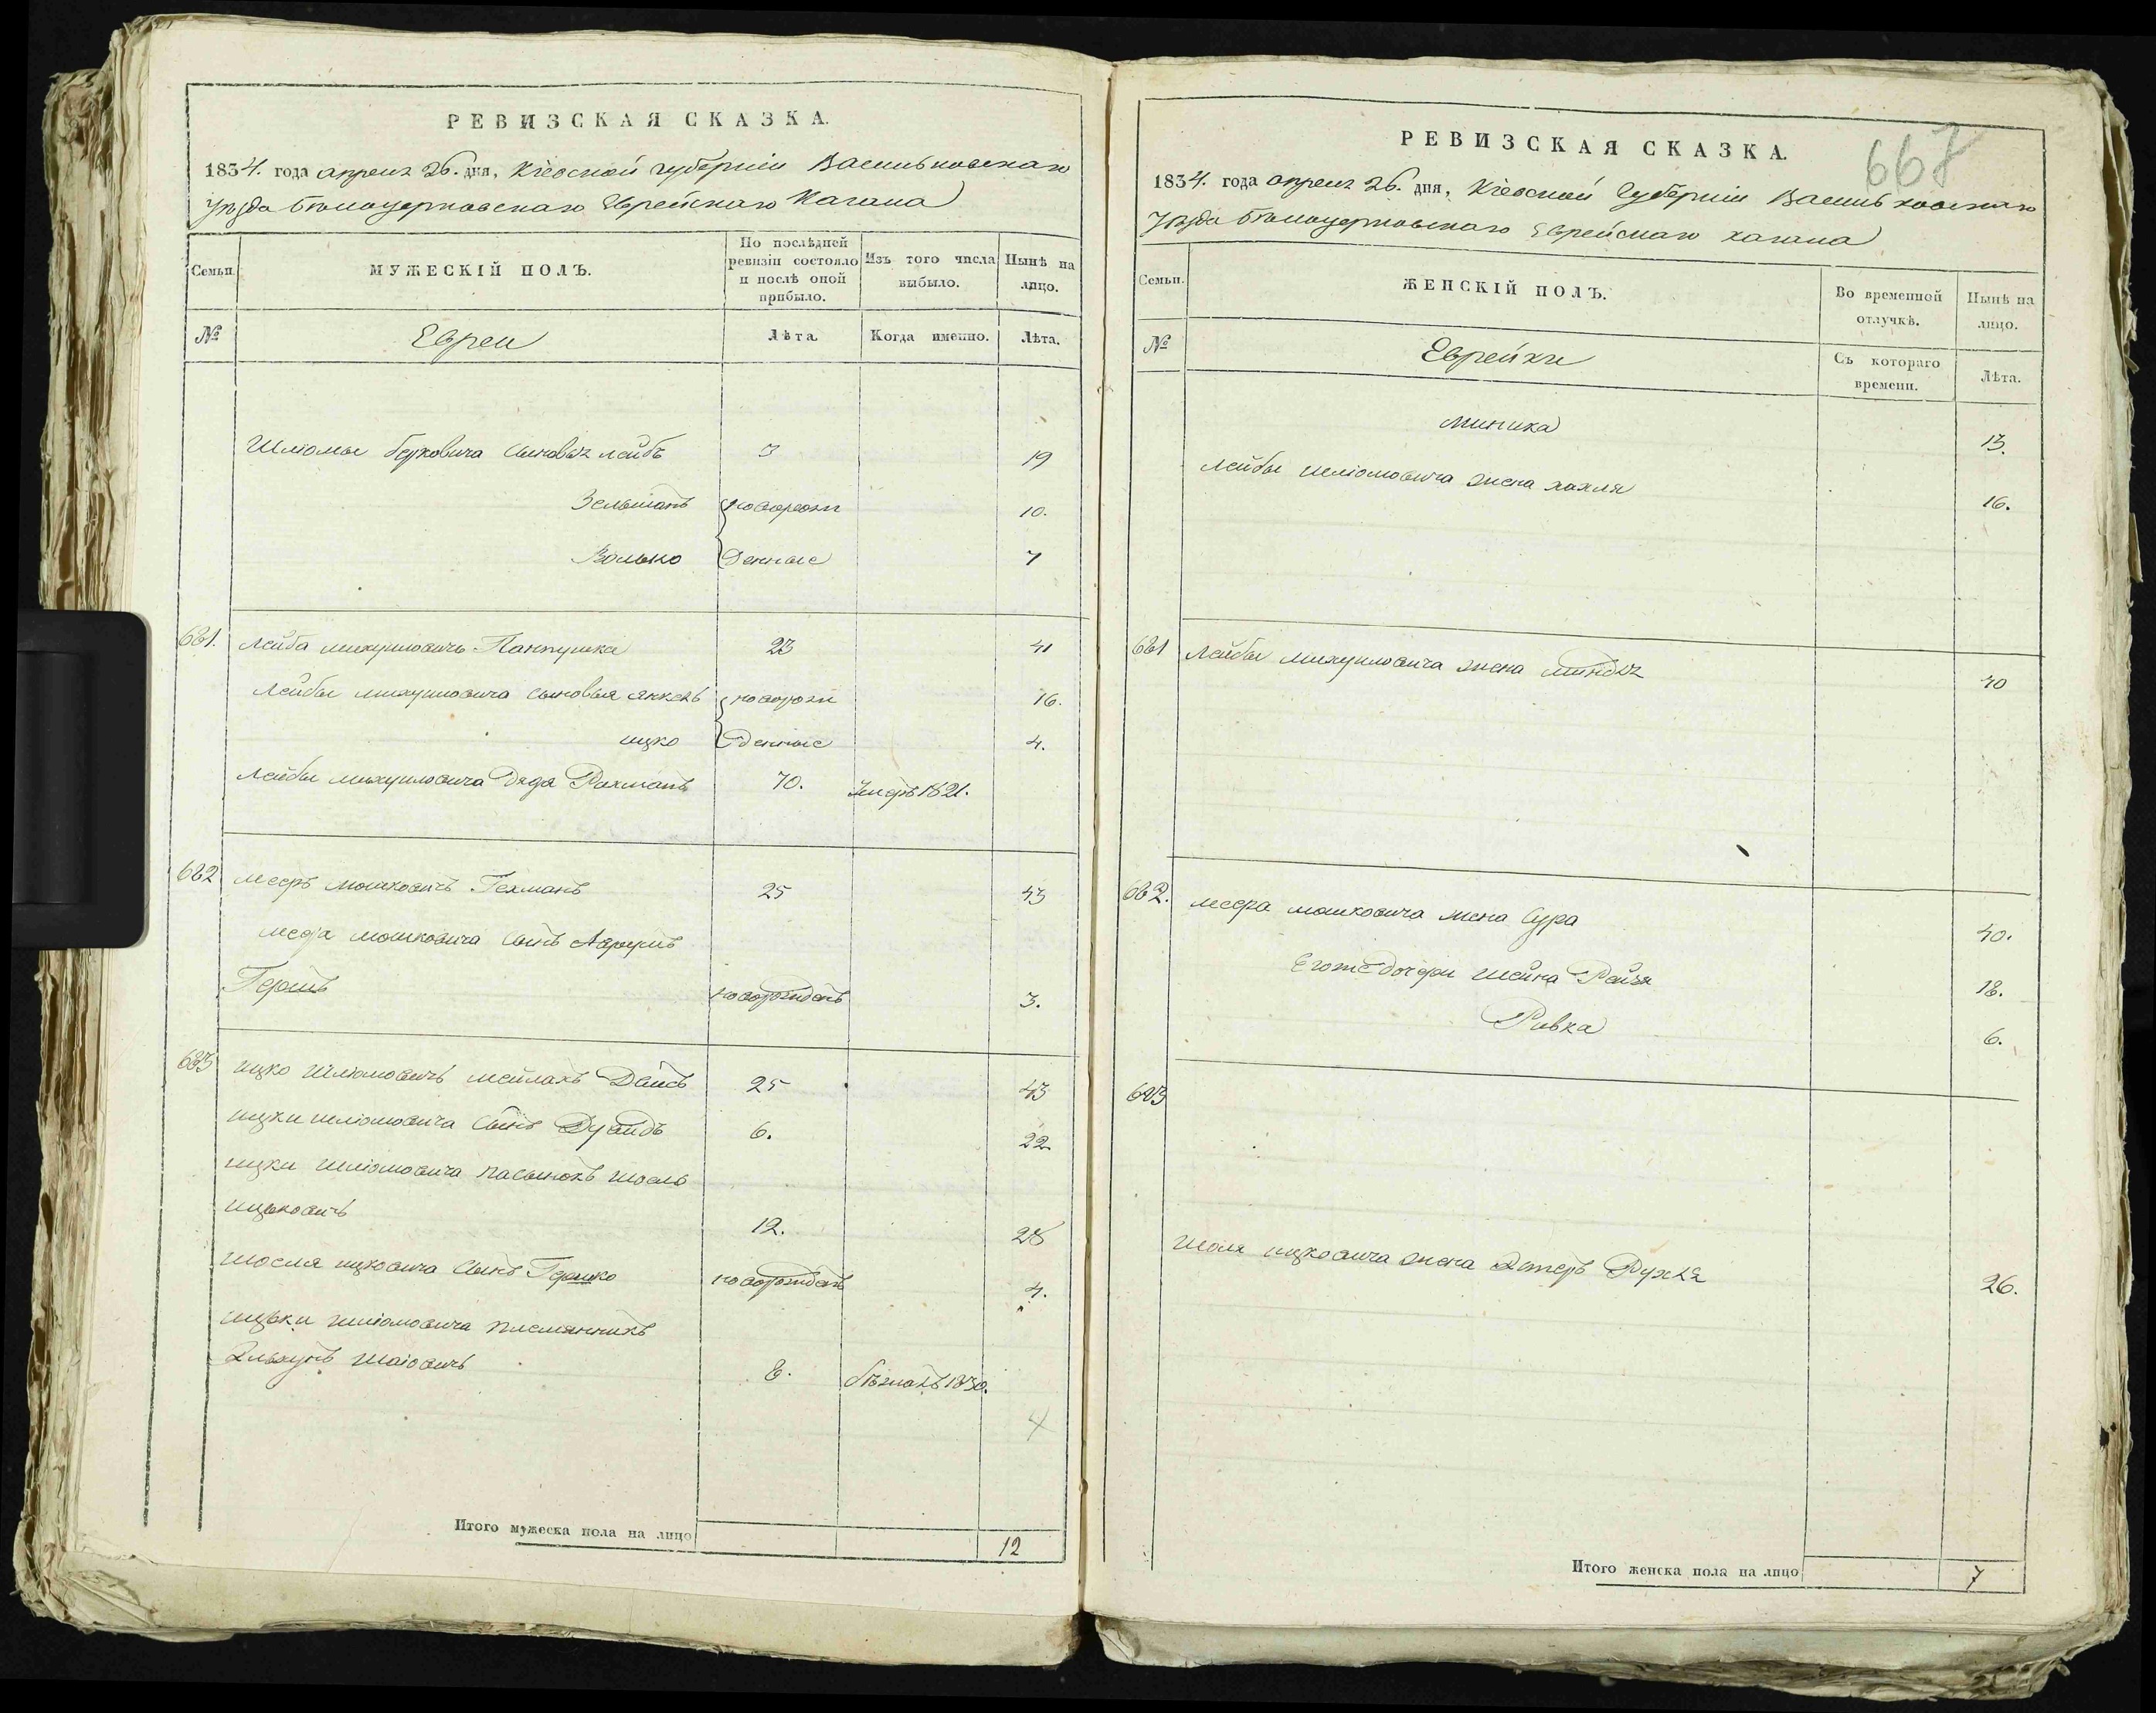 РЕВИЗСКАЯ СКАЗКА.
1834. года апреля 26. дня, Кіевской губерніи Васильковскаго
уѣзда Бѣлоцерковскаго Еврейскаго Кагала
Семьи.
МУЖЕСКІЙ ПОЛЪ.
По послѣдней ревизіи состояло и послѣ оной прибыло.
Изъ того числа выбыло.
Нынѣ на лицо.
№
Евреи
Лѣта.
Когда именно.
Лѣта.
Шліомы Берковича сыновья лейбъ 3 19
Зельманъ новорож 10.
Волько денные 7
681. Лейба михуиловичъ 23 41
Лейбы михуиловича сыновья янкель новорож 16.
ицко денные 4.
Лейбы михуиловича дядя Рахманъ 70. Умеръ 1821.
682 мееръ мошковичъ Гехманъ 25 43
меера мошковича сынъ Аврумъ
Гершъ новорожденъ 3.
683 ицко Шліомовичъ 25 43
ицки шліомовича сынъ Дувидъ 6. 22
ицки шліомовича пасынокъ
ицковичъ 12. 28
ицковича сынъ Гершко новорожденъ 4.
ицьки шліомовича племянникъ
8. бѣжалъ 1830.
4
Итого мужеска пола на лицо 12
РЕВИЗСКАЯ СКАЗКА.
667
1834. года апреля 26. дня, Кіевской Губерніи Васильковскаго
уѣзда Бѣлоцерковскаго Еврейскаго кагала
Семьи.
ЖЕНСКІЙ ПОЛЪ.
Во временной отлучкѣ.
Нынѣ на лицо.
№
Еврейки
Съ котораго времени.
Лѣта.
13.
лейбы шліомовича жена хахля 16.
681 Лейбы михуиловича жена 40
682. меера мошковича жена Сура 40.
Егожъ дочери шейна Рейзя 18.
Ривка 6.
683
ицковича жена Эстеръ Рухля 26.
Итого женска пола на лицо 7